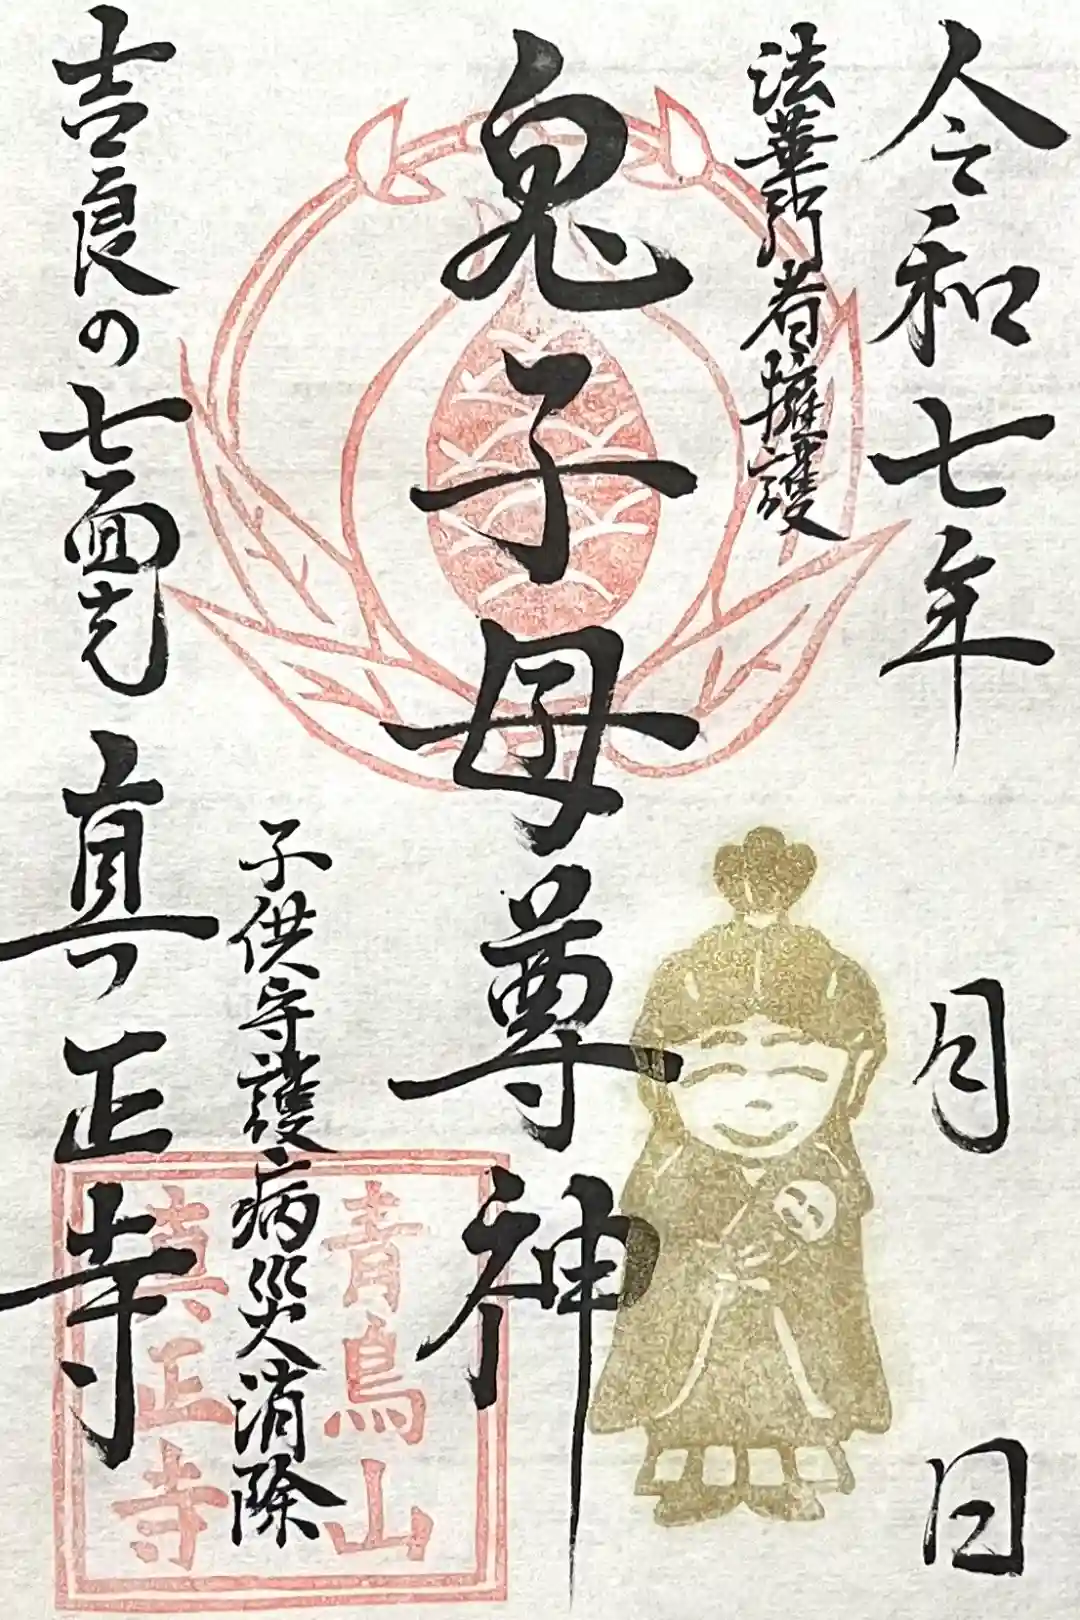 令和七年 月 日
法華行者擁護
鬼子母尊神
子供守護病災消除
吉良の七面さん 真正寺
青鳥山
真正寺